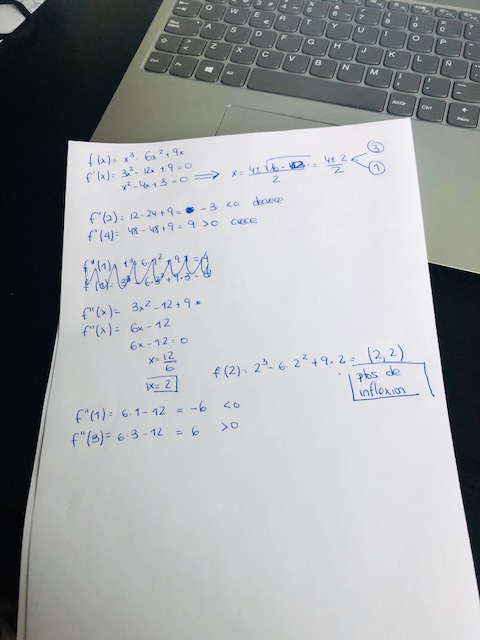 f(x) = x³ - 6x² + 9x
f'(x) = 3x² - 12x + 9 = 0
x² - 4x + 3 = 0 ⟹ x = 4 ± √16 - 12 / 2 = 4 ± 2 / 2
3
1
f'(2) = 12 - 24 + 9 = - 3 < 0 decrece
f'(4) = 48 - 48 + 9 = 9 > 0 crece
f''(x) = 3x² - 12 + 9
f''(x) = 6x - 12
6x - 12 = 0
x = 12 / 6
x = 2
f(2) = 2³ - 6 · 2² + 9 · 2 = (2, 2)
ptos de
inflexion
f''(1) = 6 · 1 - 12 = -6 < 0
f''(3) = 6 · 3 - 12 = 6 > 0
Q W E R T Y
A S D F G H J K L Ñ
Z X C V B N M
Alt
AltGr
Ctrl